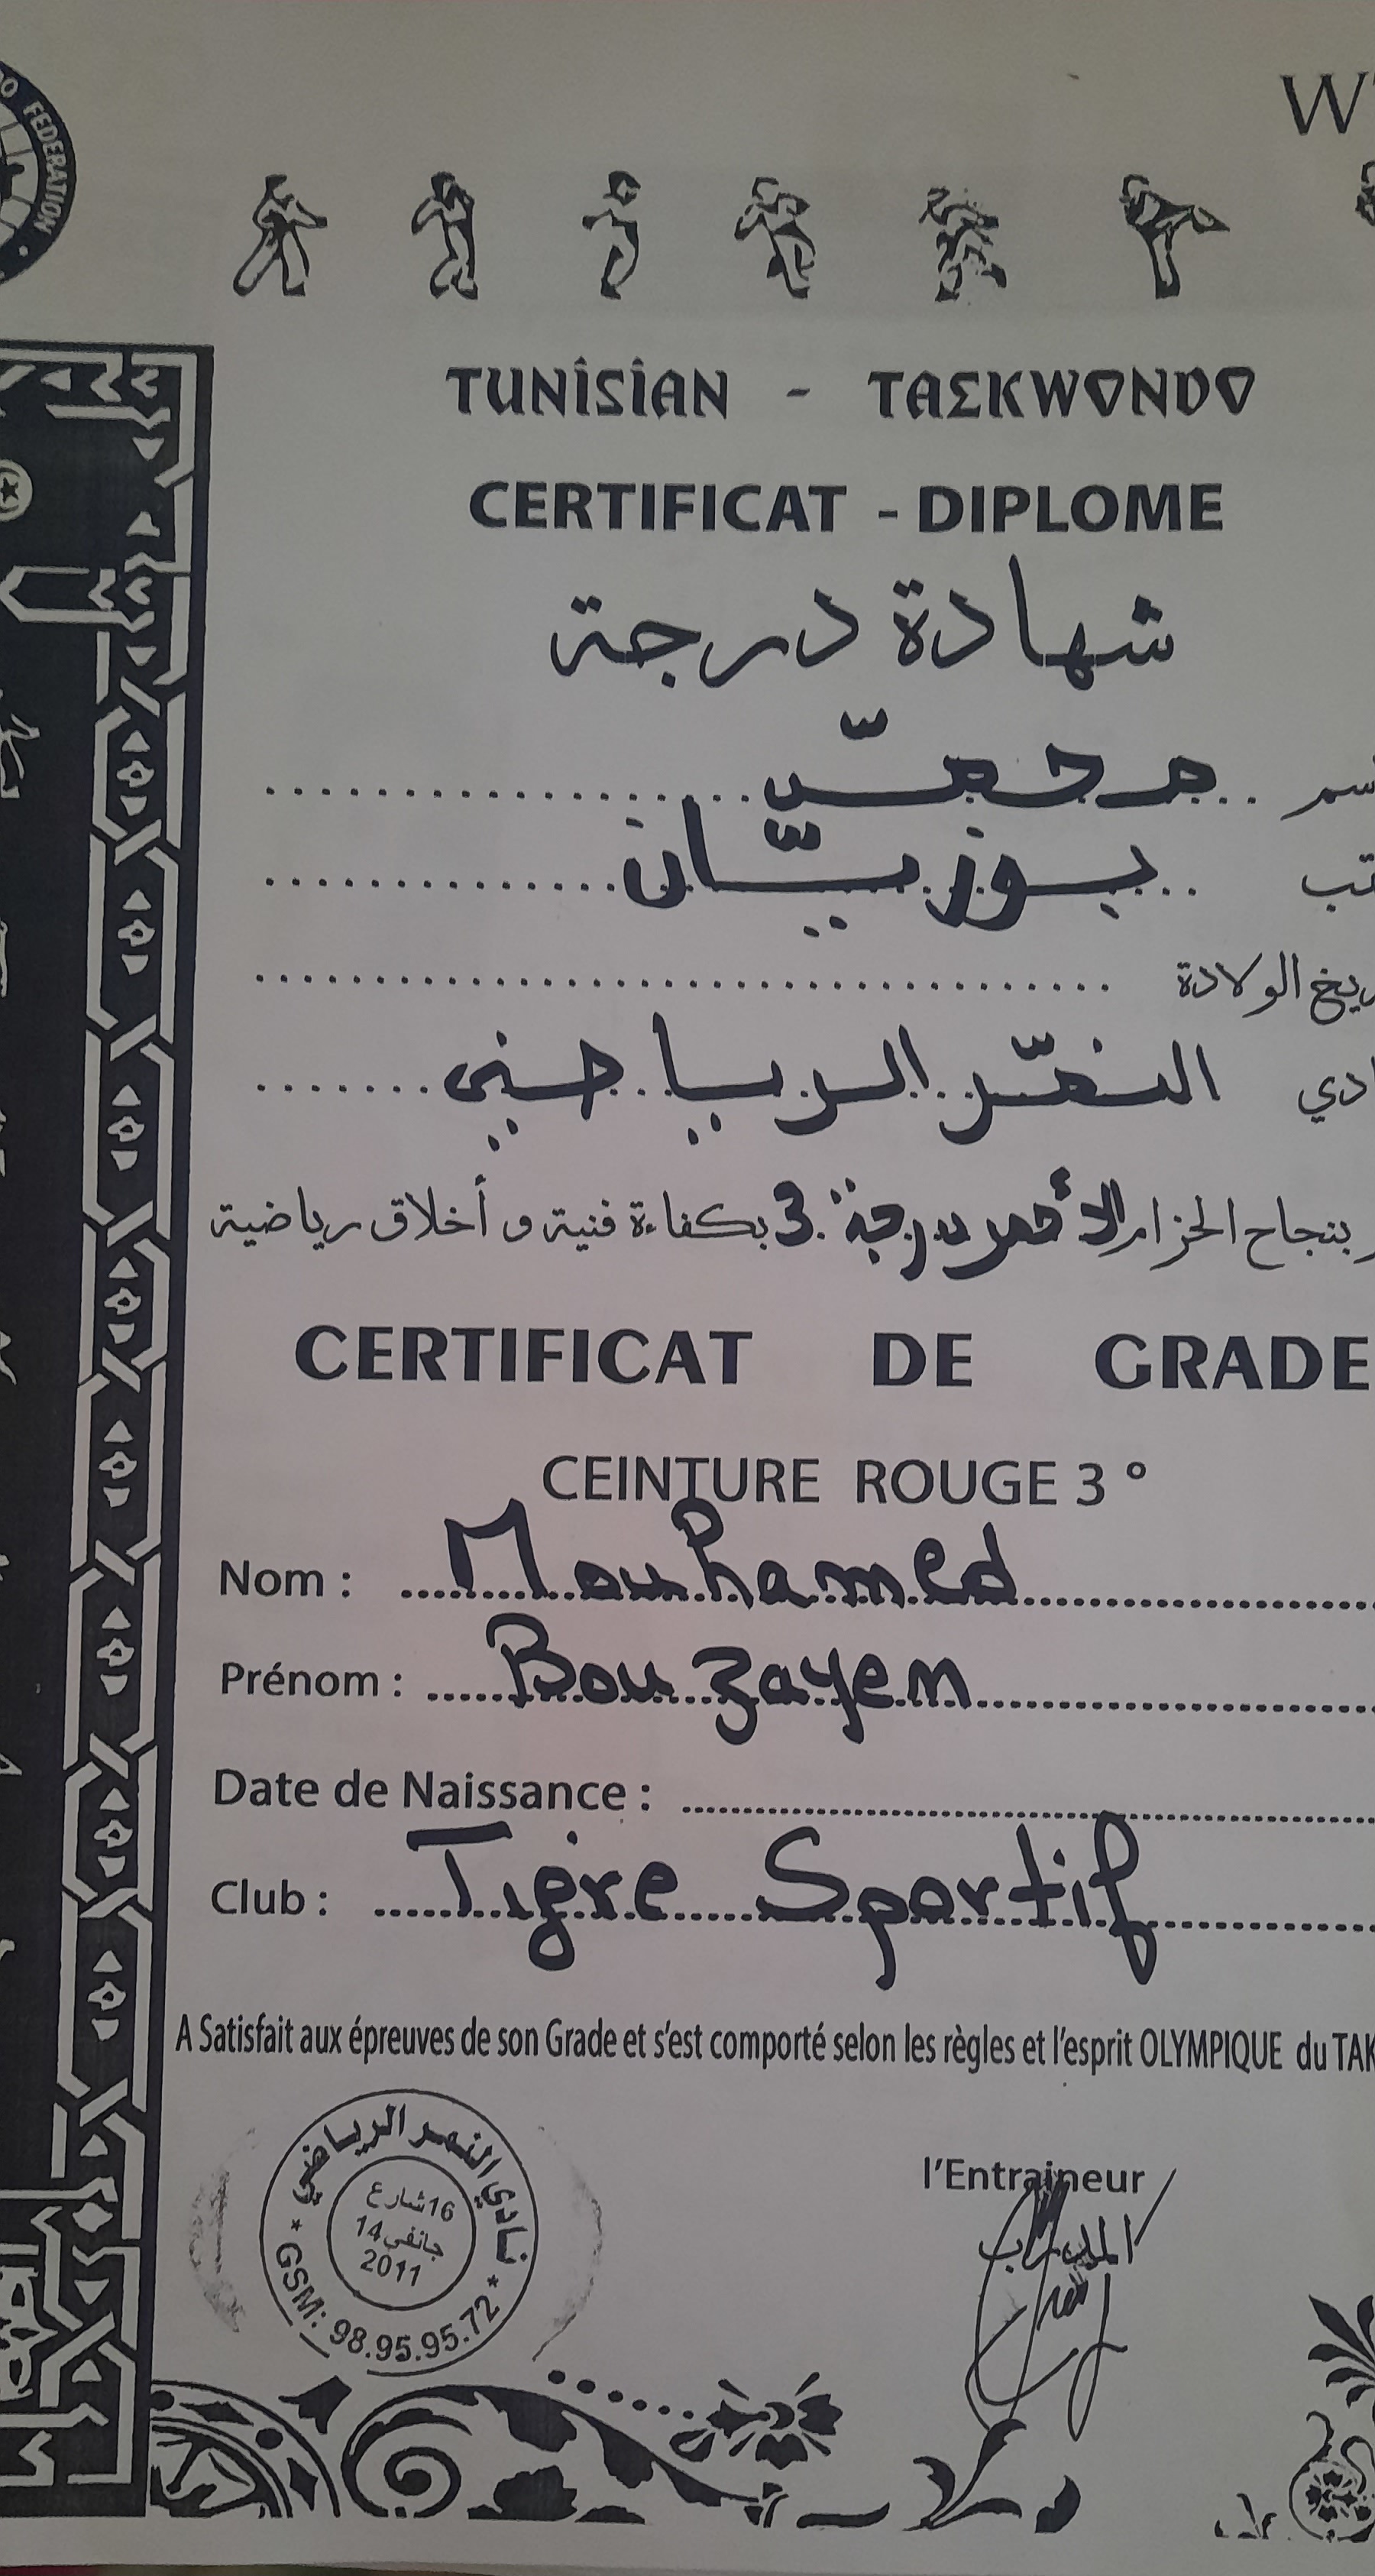 DO FEDERATION
TUNISIAN - TAEKWONDO
CERTIFICAT - DIPLOME
شهادة درجة
محمد
بوزيان
الولادة
النمر الرياضي
بنجاح الحزام الأحمر درجة 3 بكفاءة فنية و أخلاق رياضية
CERTIFICAT DE GRADE
CEINTURE ROUGE 3 °
Nom : Mouhamed
Prénom : Bouzayen
Date de Naissance :
Club : Tigre Sportif
A Satisfait aux épreuves de son Grade et s'est comporté selon les règles et l'esprit OLYMPIQUE du TAK
l'Entraineur
نادي النمر الرياضي
16 شارع
14 جانفي
2011
* GSM: 98.95.95.72 *